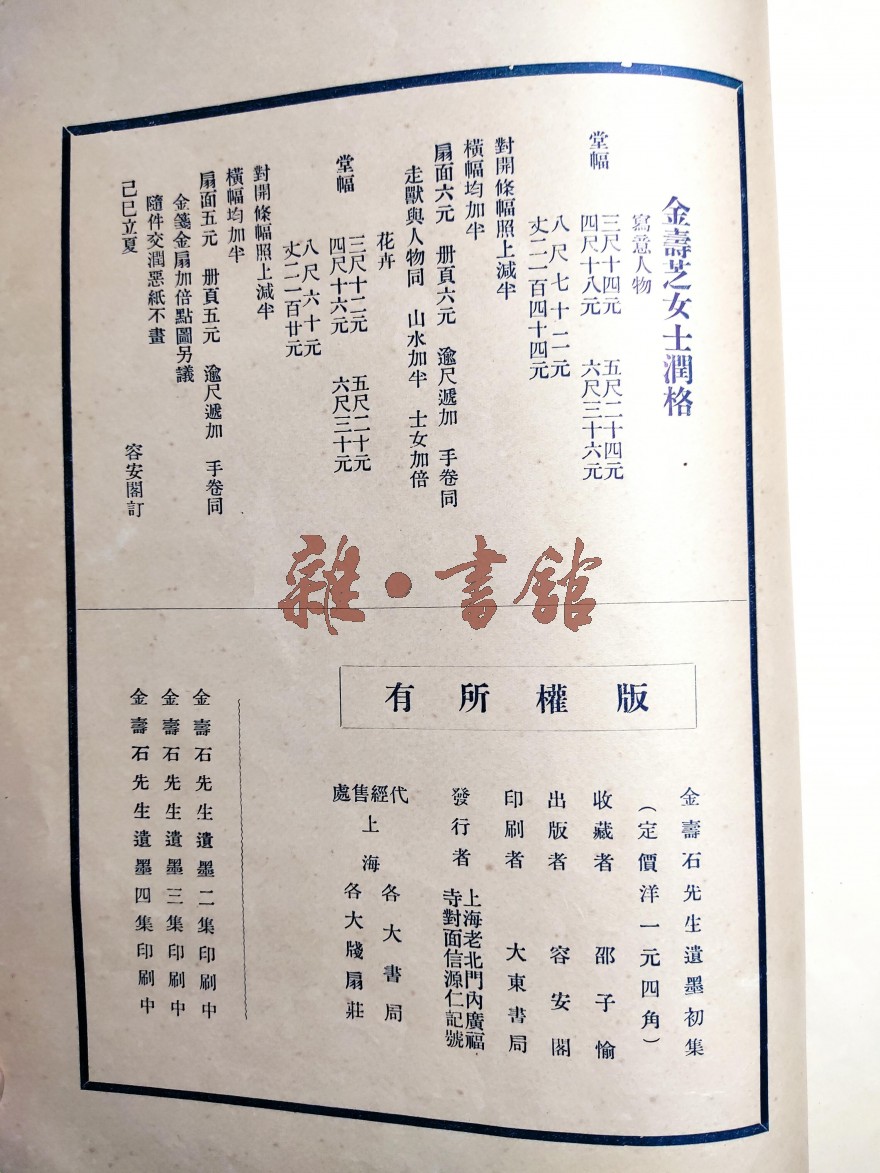 金壽芝女士潤格
寫意人物
堂幅
三尺十四元　五尺二十四元
四尺十八元　六尺三十六元
八尺七十二元
丈二一百四十四元
對開條幅照上減半
橫幅均加半
扇面六元　册頁六元　逾尺遞加　手卷同
走獸與人物同　山水加半　士女加倍
花卉
堂幅
三尺十二元　五尺二十元
四尺十六元　六尺三十元
八尺六十元
丈二一百廿元
對開條幅照上減半
橫幅均加半
扇面五元　册頁五元　逾尺遞加　手卷同
金箋金扇加倍點圖另議
隨件交潤惡紙不畫
己巳立夏
容安閣訂
雜·書館
版權所有
金壽石先生遺墨初集
（定價洋一元四角）
收藏者　邵子愉
出版者　容安閣
印刷者　大東書局
發行者　上海老北門內廣福寺對面信源仁記號
代經售處　上海　各大書局
各大牋扇莊
金壽石先生遺墨二集印刷中
金壽石先生遺墨三集印刷中
金壽石先生遺墨四集印刷中